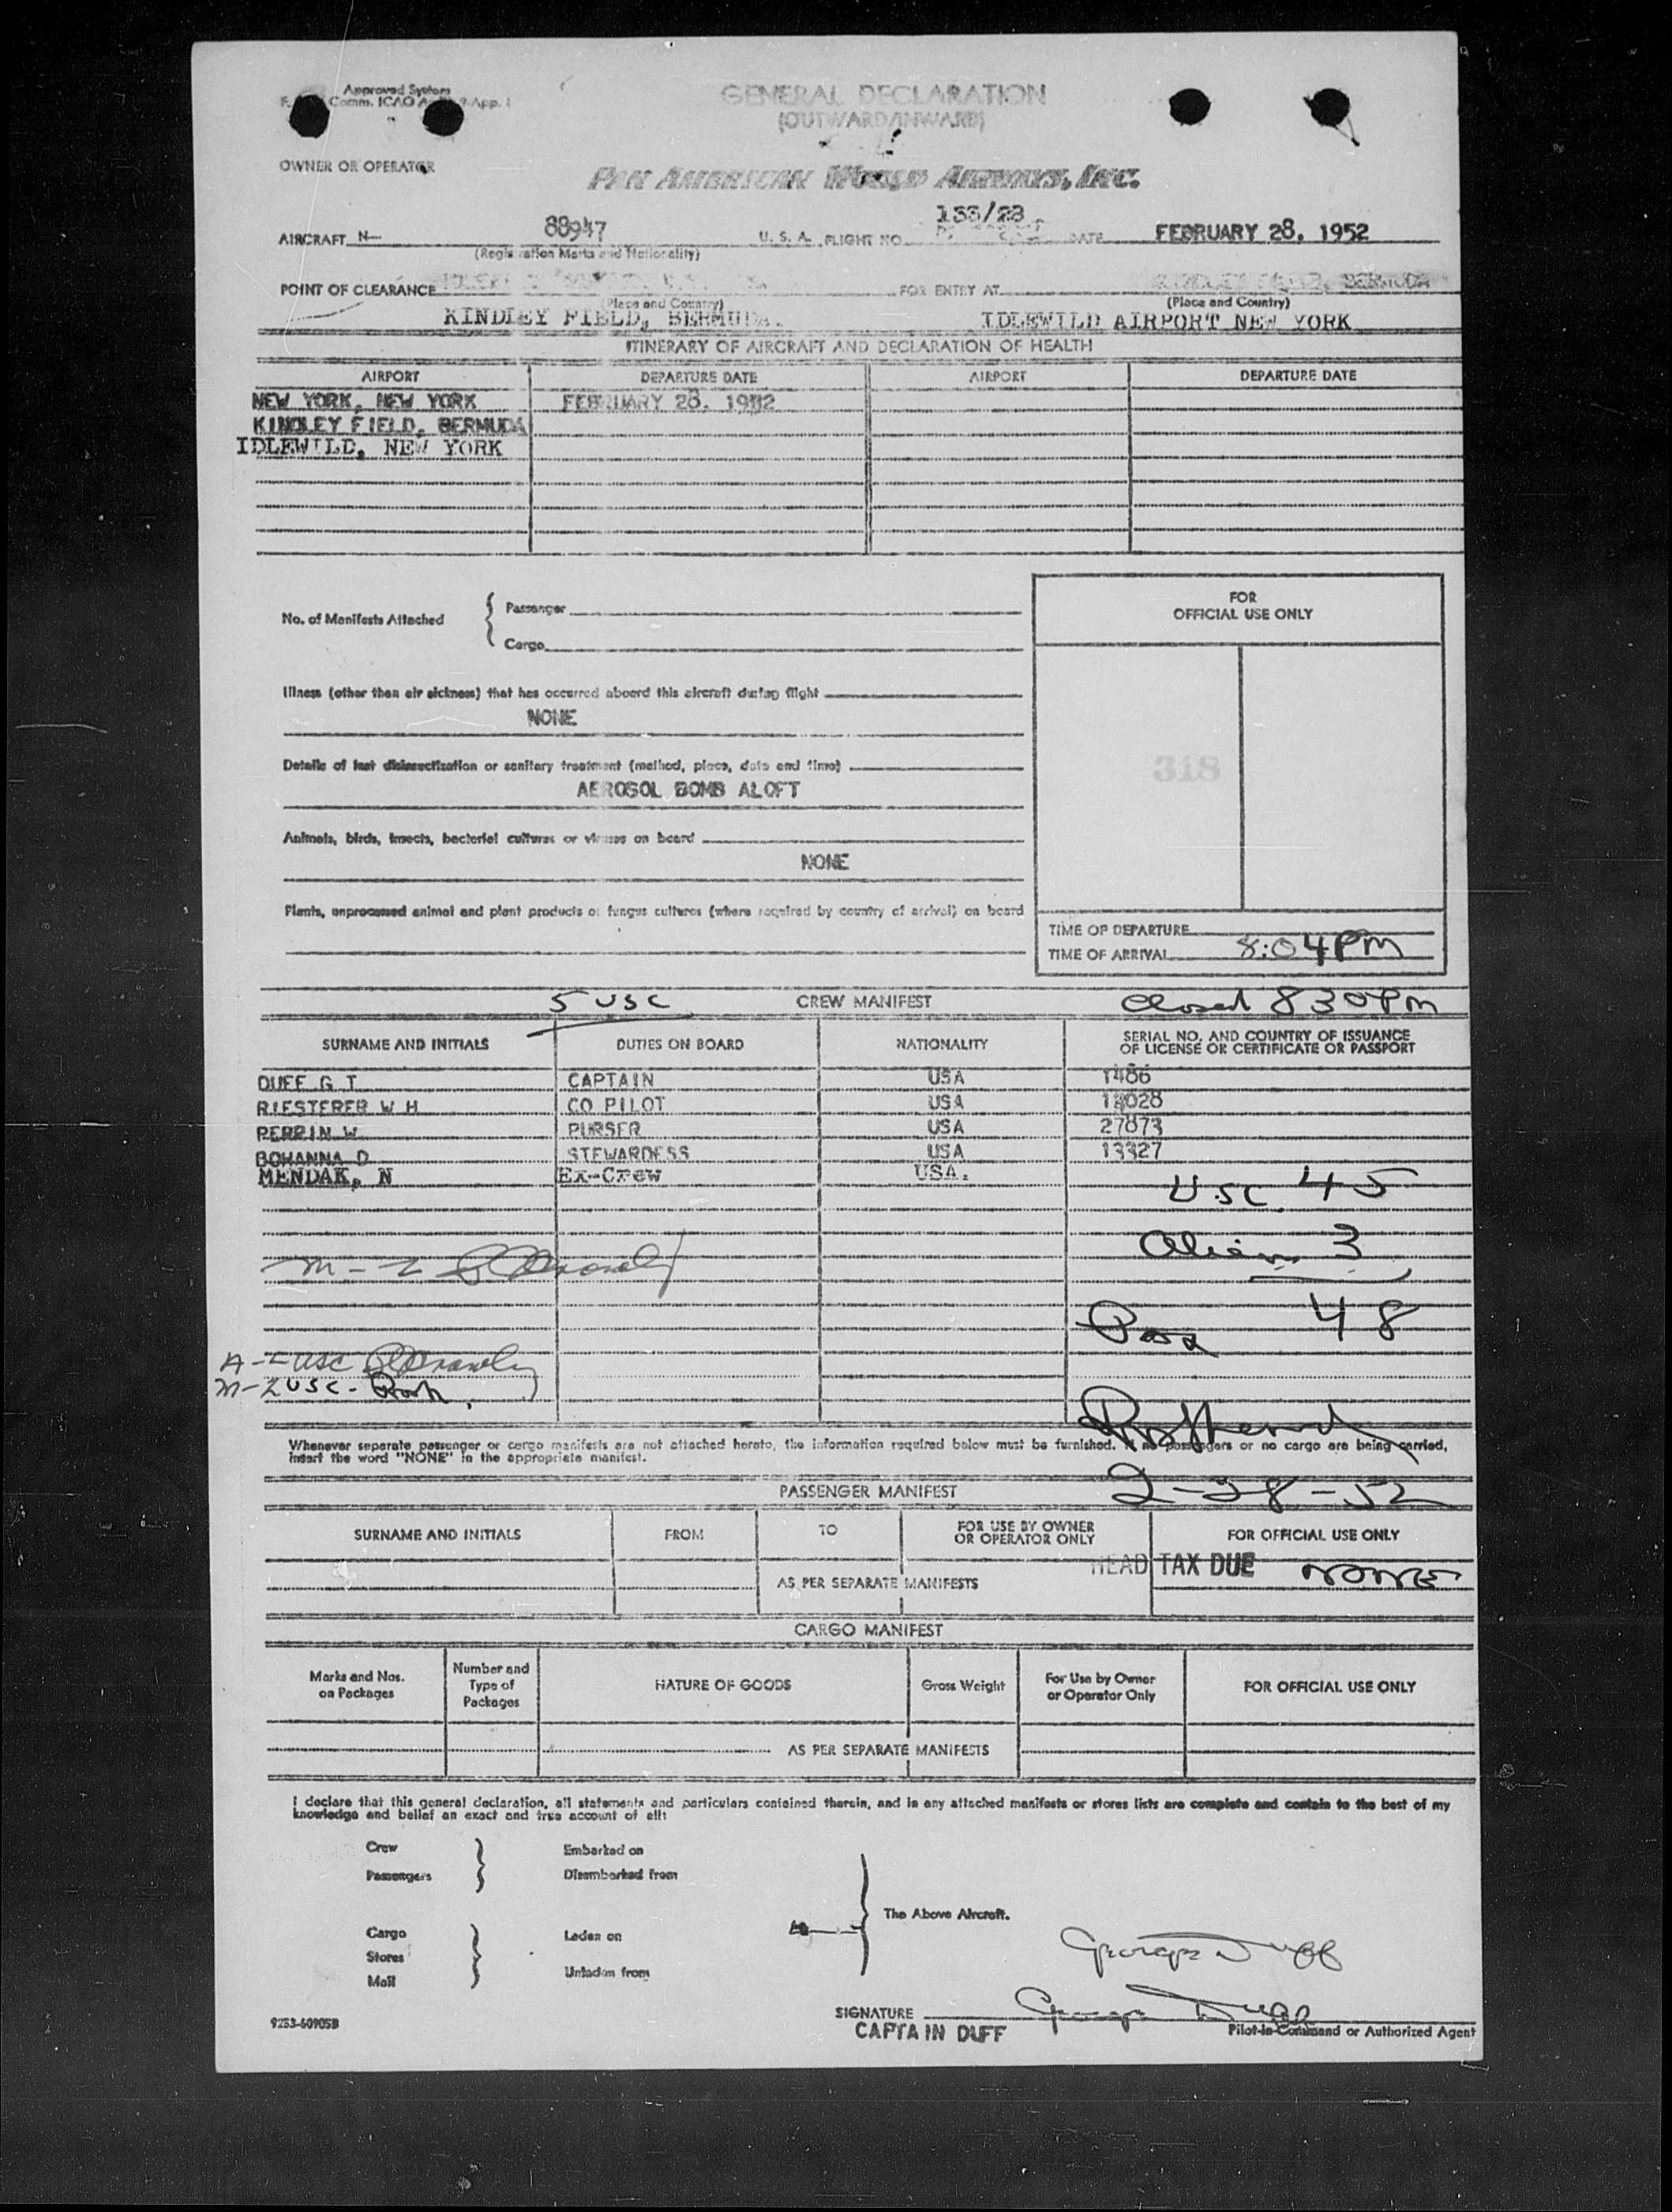 Approved System
Comm. ICAO 9 App. 1
GENERAL DECLARATION
(OUTWARD/INWARD)
OWNER OR OPERATOR
PAN AMERICAN WORLD AIRWAYS, INC.
AIRCRAFT N— 88947 U. S. A. FLIGHT NO. 133/28 DATE FEBRUARY 28, 1952
(Registration Marks and Nationality)
POINT OF CLEARANCE FOR ENTRY AT BERMUDA
(Place and Country) (Place and Country)
KINDLEY FIELD, BERMUDA. IDLEWILD AIRPORT NEW YORK
ITINERARY OF AIRCRAFT AND DECLARATION OF HEALTH
AIRPORT DEPARTURE DATE AIRPORT DEPARTURE DATE
NEW YORK, NEW YORK FEBRUARY 28, 1952
KINDLEY FIELD, BERMUDA
IDLEWILD, NEW YORK
FOR
OFFICIAL USE ONLY
No. of Manifests Attached
Passenger
Cargo
Illness (other than air sickness) that has occurred aboard this aircraft during flight
NONE
Details of last disinsectization or sanitary treatment (method, place, date and time)
AEROSOL BOMB ALOFT
318
Animals, birds, insects, bacterial cultures or viruses on board
NONE
Plants, unprocessed animal and plant products or fungus cultures (where required by country of arrival) on board
TIME OF DEPARTURE
TIME OF ARRIVAL 8:04 PM
5 USC CREW MANIFEST Closed 830 PM
SURNAME AND INITIALS DUTIES ON BOARD NATIONALITY SERIAL NO. AND COUNTRY OF ISSUANCE
OF LICENSE OR CERTIFICATE OR PASSPORT
DUFF G T CAPTAIN USA 1486
RIESTERER W H CO PILOT USA 12028
PERRIN W PURSER USA 27873
BOHANNA D STEWARDESS USA 13327
MENDAK, N Ex-Crew USA.
USC 45
Alien 3
M - 2
Pax 48
A - 2 USC
M - 2 USC -
Whenever separate passenger or cargo manifests are not attached hereto, the information required below must be furnished. If no passengers or no cargo are being carried,
insert the word "NONE" in the appropriate manifest.
PASSENGER MANIFEST 2-28-52
SURNAME AND INITIALS FROM TO FOR USE BY OWNER
OR OPERATOR ONLY FOR OFFICIAL USE ONLY
HEAD TAX DUE NONE
AS PER SEPARATE MANIFESTS
CARGO MANIFEST
Marks and Nos.
on Packages Number and
Type of
Packages NATURE OF GOODS Gross Weight For Use by Owner
or Operator Only FOR OFFICIAL USE ONLY
AS PER SEPARATE MANIFESTS
I declare that this general declaration, all statements and particulars contained therein, and in any attached manifests or stores lists are complete and contain to the best of my
knowledge and belief an exact and true account of all:
Crew Embarked on
Passengers Disembarked from
The Above Aircraft.
Cargo Laden on
Stores
Mail Unladen from
George Duff
SIGNATURE George Duff
CAPTAIN DUFF Pilot-in-Command or Authorized Agent
9253-60905B